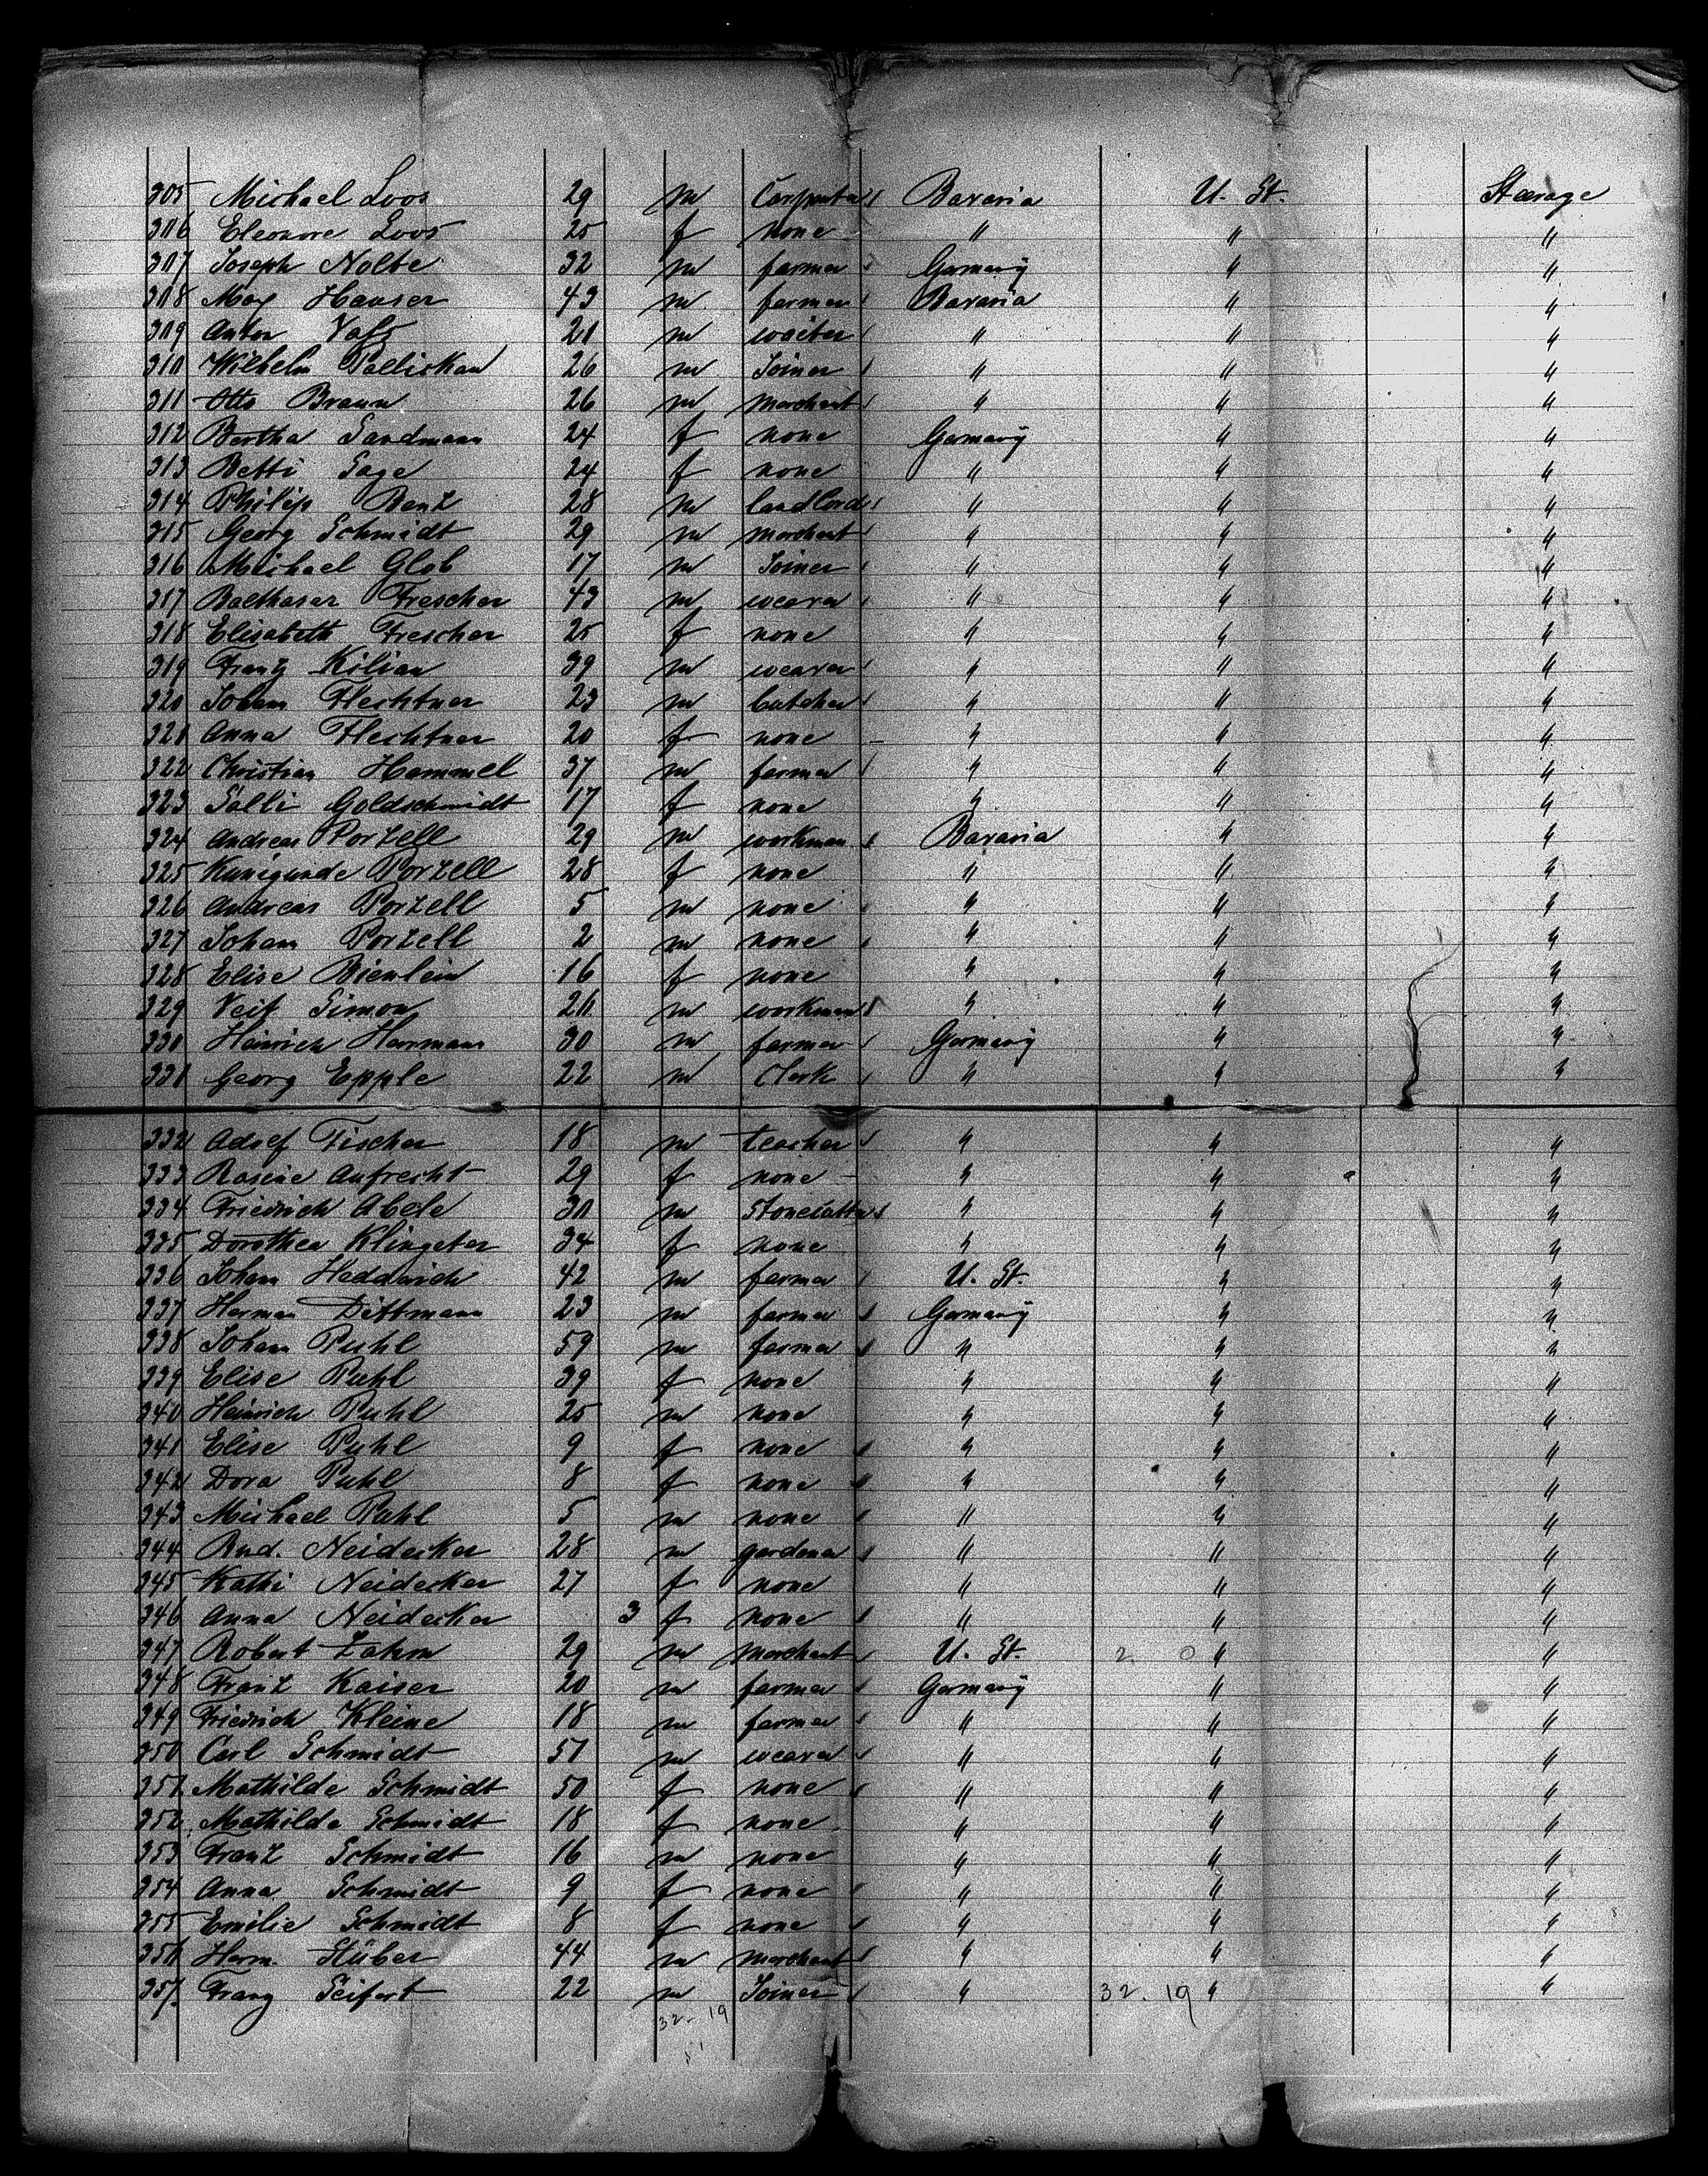 305 Michael Loos 29 m Carpenter Bavaria U. St. Steerage
306 Eleonore Loos 25 f none " " "
307 Joseph Nolte 32 m farmer Germany " "
308 Max Hauser 43 m farmer Bavaria " "
309 Anton 21 m waiter " " "
310 Wilhelm 26 m Joiner " " "
311 Otto Braun 26 m Merchant " " "
312 Bertha Sandmann 24 f none Germany " "
313 Betti Sage 24 f none " " "
314 Philip Benz 28 m landlord " " "
315 Georg Schmidt 29 m Merchant " " "
316 Michael Glob 17 m Joiner " " "
317 Balthasar Frescher 43 m weaver " " "
318 Elisabeth Frescher 25 f none " " "
319 Franz Kilian 39 m weaver " " "
320 Johann Flechtner 23 m butcher " " "
321 Anna Flechtner 20 f none " " "
322 Christian Hammel 37 m farmer " " "
323 Salli Goldschmidt 17 f none " " "
324 Andreas Porzell 29 m workman Bavaria " "
325 Kunigunde Porzell 28 f none " " "
326 Andreas Porzell 5 m none " " "
327 Johann Porzell 2 m none " " "
328 Elise Bienlein 16 f none " " "
329 Veit Simon m workman " " "
330 Heinrich Herrmann 30 m farmer Germany " "
331 Georg Epple 22 m Clerk " " "
332 Adolf Fischer 18 m teacher " " "
333 Rosine Aufrecht 29 f none " " "
334 Friedrich Abele m Stonecutter " " "
335 Dorothea Klingeter 34 f none " " "
336 Johann 42 m farmer U. St. " "
337 Herman Dittmann 23 m farmer Germany " "
338 Johann Puhl 59 m farmer " " "
339 Elise Puhl 39 f none " " "
340 Heinrich Puhl 25 m none " " "
341 Elise Puhl 9 f none " " "
342 Dora Puhl 8 f none " " "
343 Michael Puhl 5 m none " " "
344 Rud. Neidecker 28 m gardener " " "
345 Kathi Neidecker 27 f none " " "
346 Anna Neidecker 3 f none " " "
347 Robert Zahm 29 m Merchant U. St. 2. 0 " "
348 Franz Kaiser 20 m farmer Germany " "
349 Friedrich Kleine 18 m farmer " " "
350 Carl Schmidt 51 m weaver " " "
351 Mathilde Schmidt 50 f none " " "
352 Mathilde Schmidt 18 f none " " "
353 Franz Schmidt 16 m none " " "
354 Anna Schmidt 9 f none " " "
355 Emilie Schmidt 8 f none " " "
356 Herm. Stüber 44 m Merchant " " "
357. Franz Seifert 22 m Joiner " 32. 19 " "
32. 19